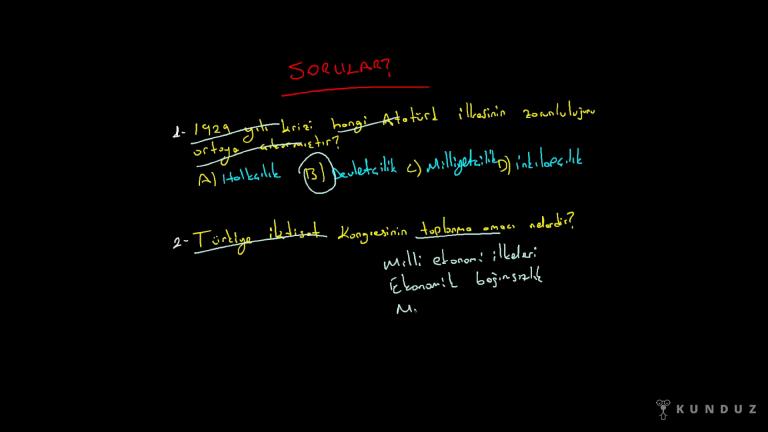 SORULAR?
1- 1929 yılı krizi hangi Atatürk ilkesinin zorunluluğunu
ortaya çıkarmıştır?
A) Halkçılık B) Devletçilik C) Milliyetçilik D) inkılapçılık
2- Türkiye iktisat Kongresinin toplanma amacı nelerdir?
Milli ekonomi ilkeleri
Ekonomik bağımsızlık
M.
KUNDUZ